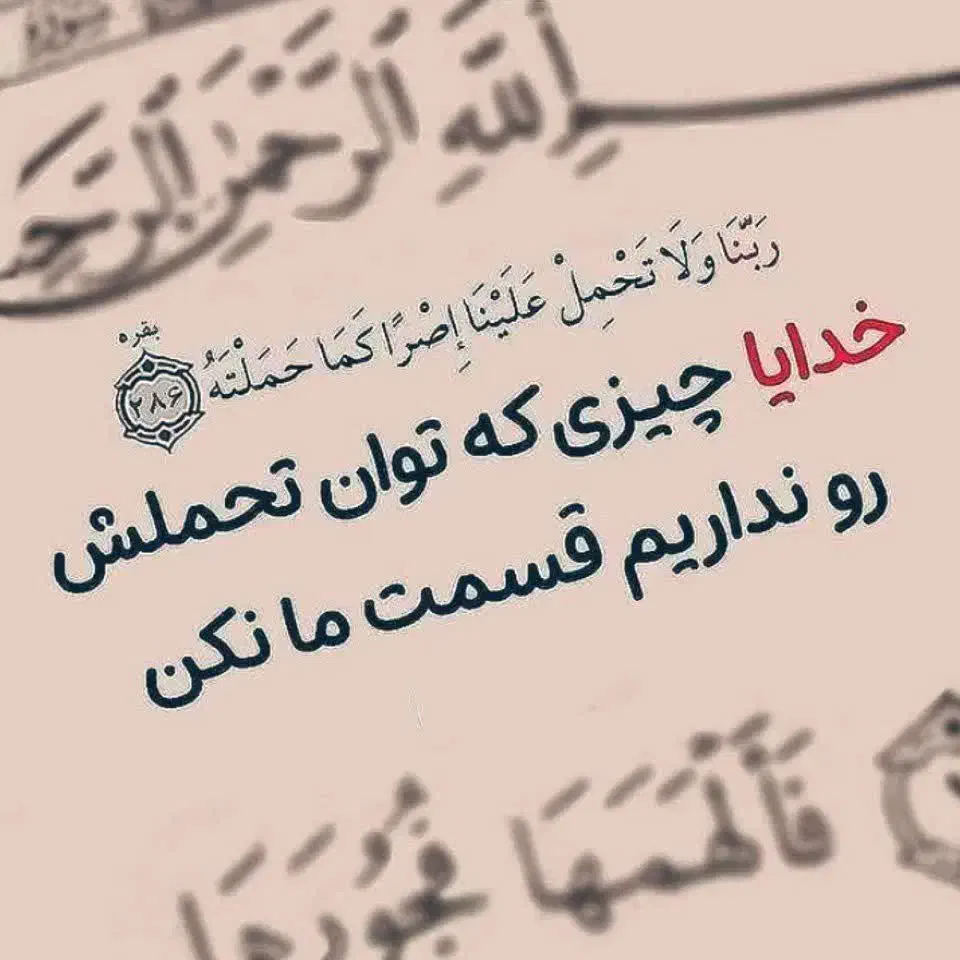 سورة
بسم ٱللَّهِ ٱلرَّحْمَٰنِ ٱلرَّحِيـ
رَبَّنَا وَلَا تَحْمِلْ عَلَيْنَا إِصْرًا كَمَا حَمَلْتَهُ
بقره
۲۸۶
خدایا چیزی که توان تحملش
رو نداریم قسمت ما نکن
فَأَلْهَمَهَا فُجُورَهَا